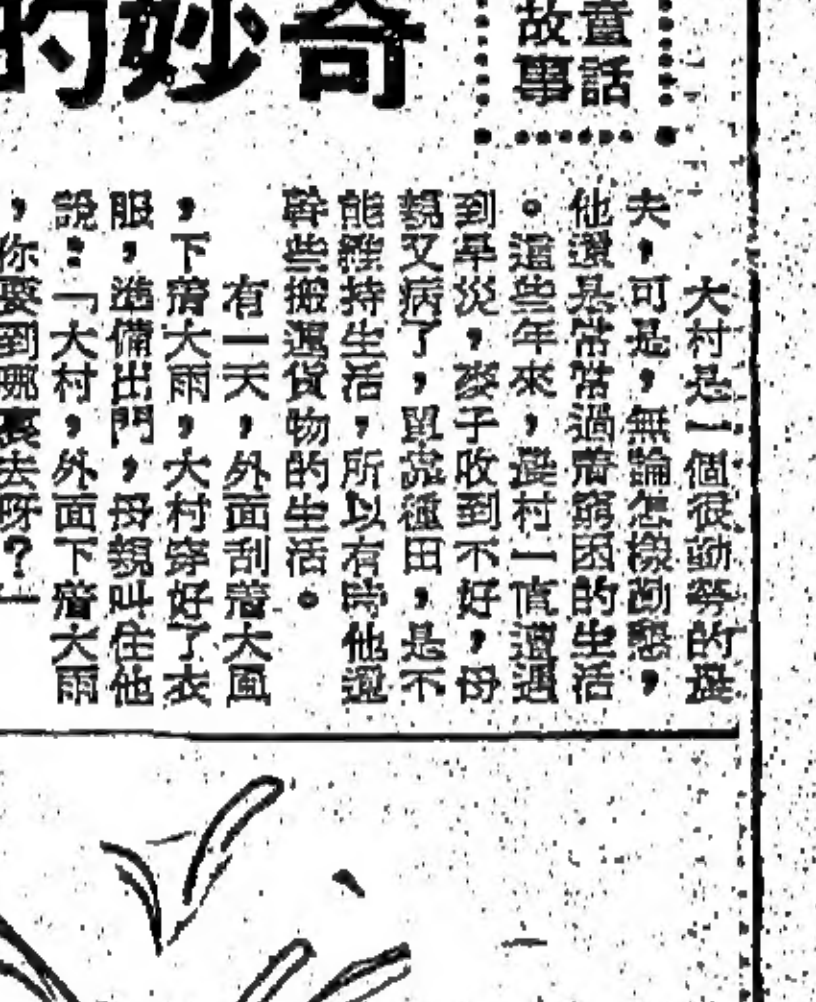 童話
故事
奇妙的
大村是一個很勤勞的農
夫，可是，無論怎樣勤懇，
他還是常常過着窮困的生活
。這些年來，農村一直遭遇
到旱災，麥子收到不好，母
親又病了，單靠種田，是不
能維持生活，所以有時他還
幹些搬運貨物的生活。
有一天，外面刮着大風
，下着大雨，大村穿好了衣
服，準備出門，母親叫住他
說：「大村，外面下着大雨
，你要到哪裏去呀？」